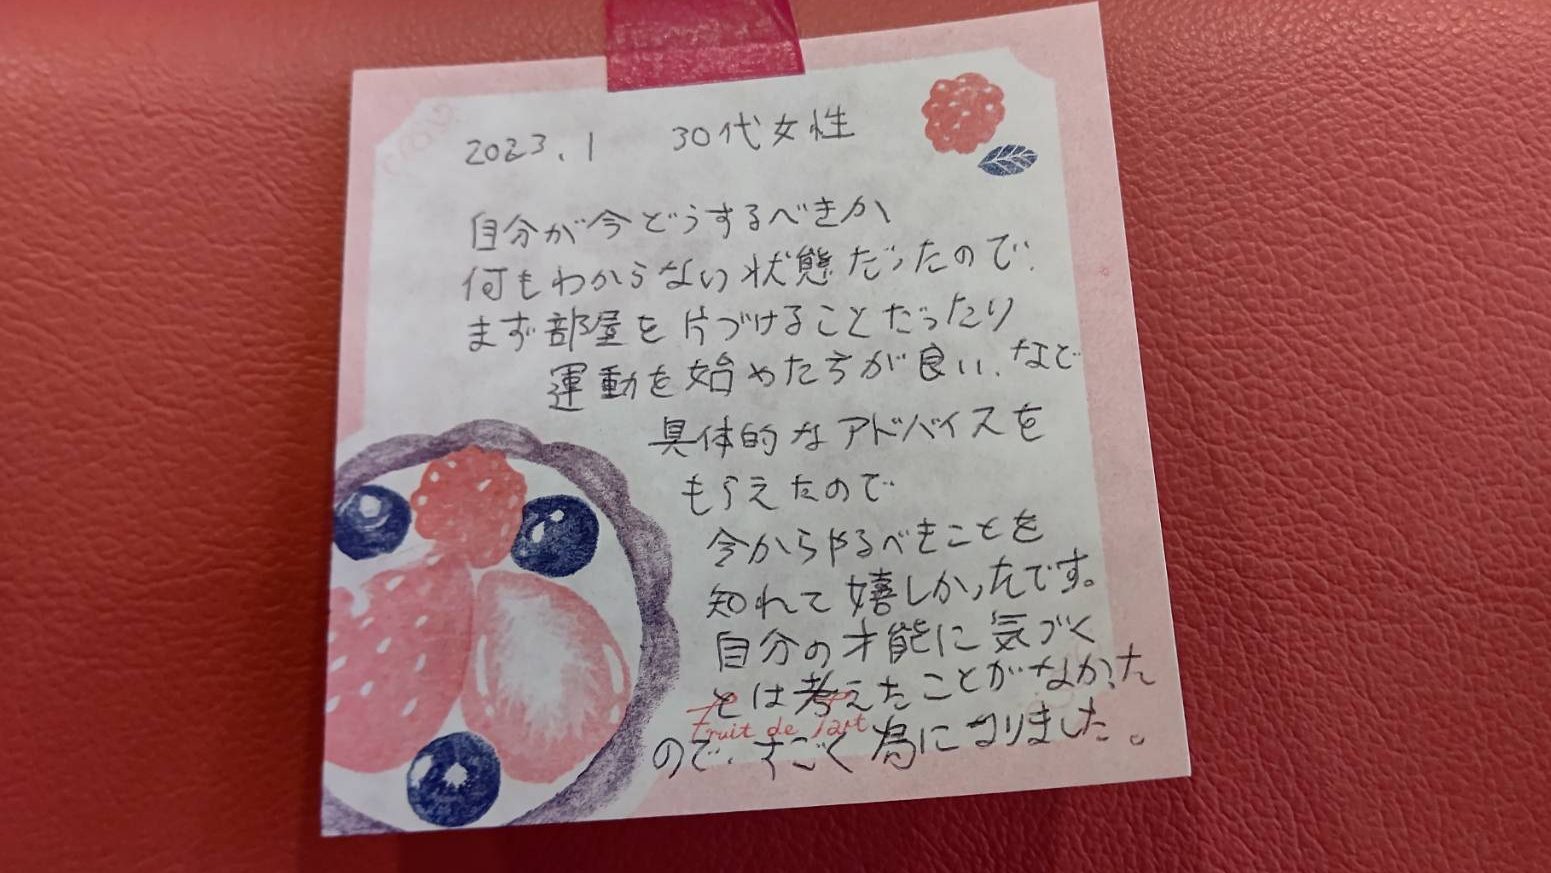 2023.1 30代女性
自分が今どうするべきか
何もわからない状態だったので、
まず部屋を片づけることだったり
運動を始めた方が良い、など
具体的なアドバイスを
もらえたので
今からやるべきことを
知れて嬉しかったです。
自分の才能に気づく
とは考えたことがなかった
Fruit de Tart
ので、すごく為になりました。